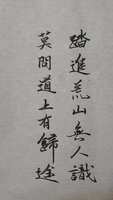 踏進荒山無人識
莫問道上有歸途